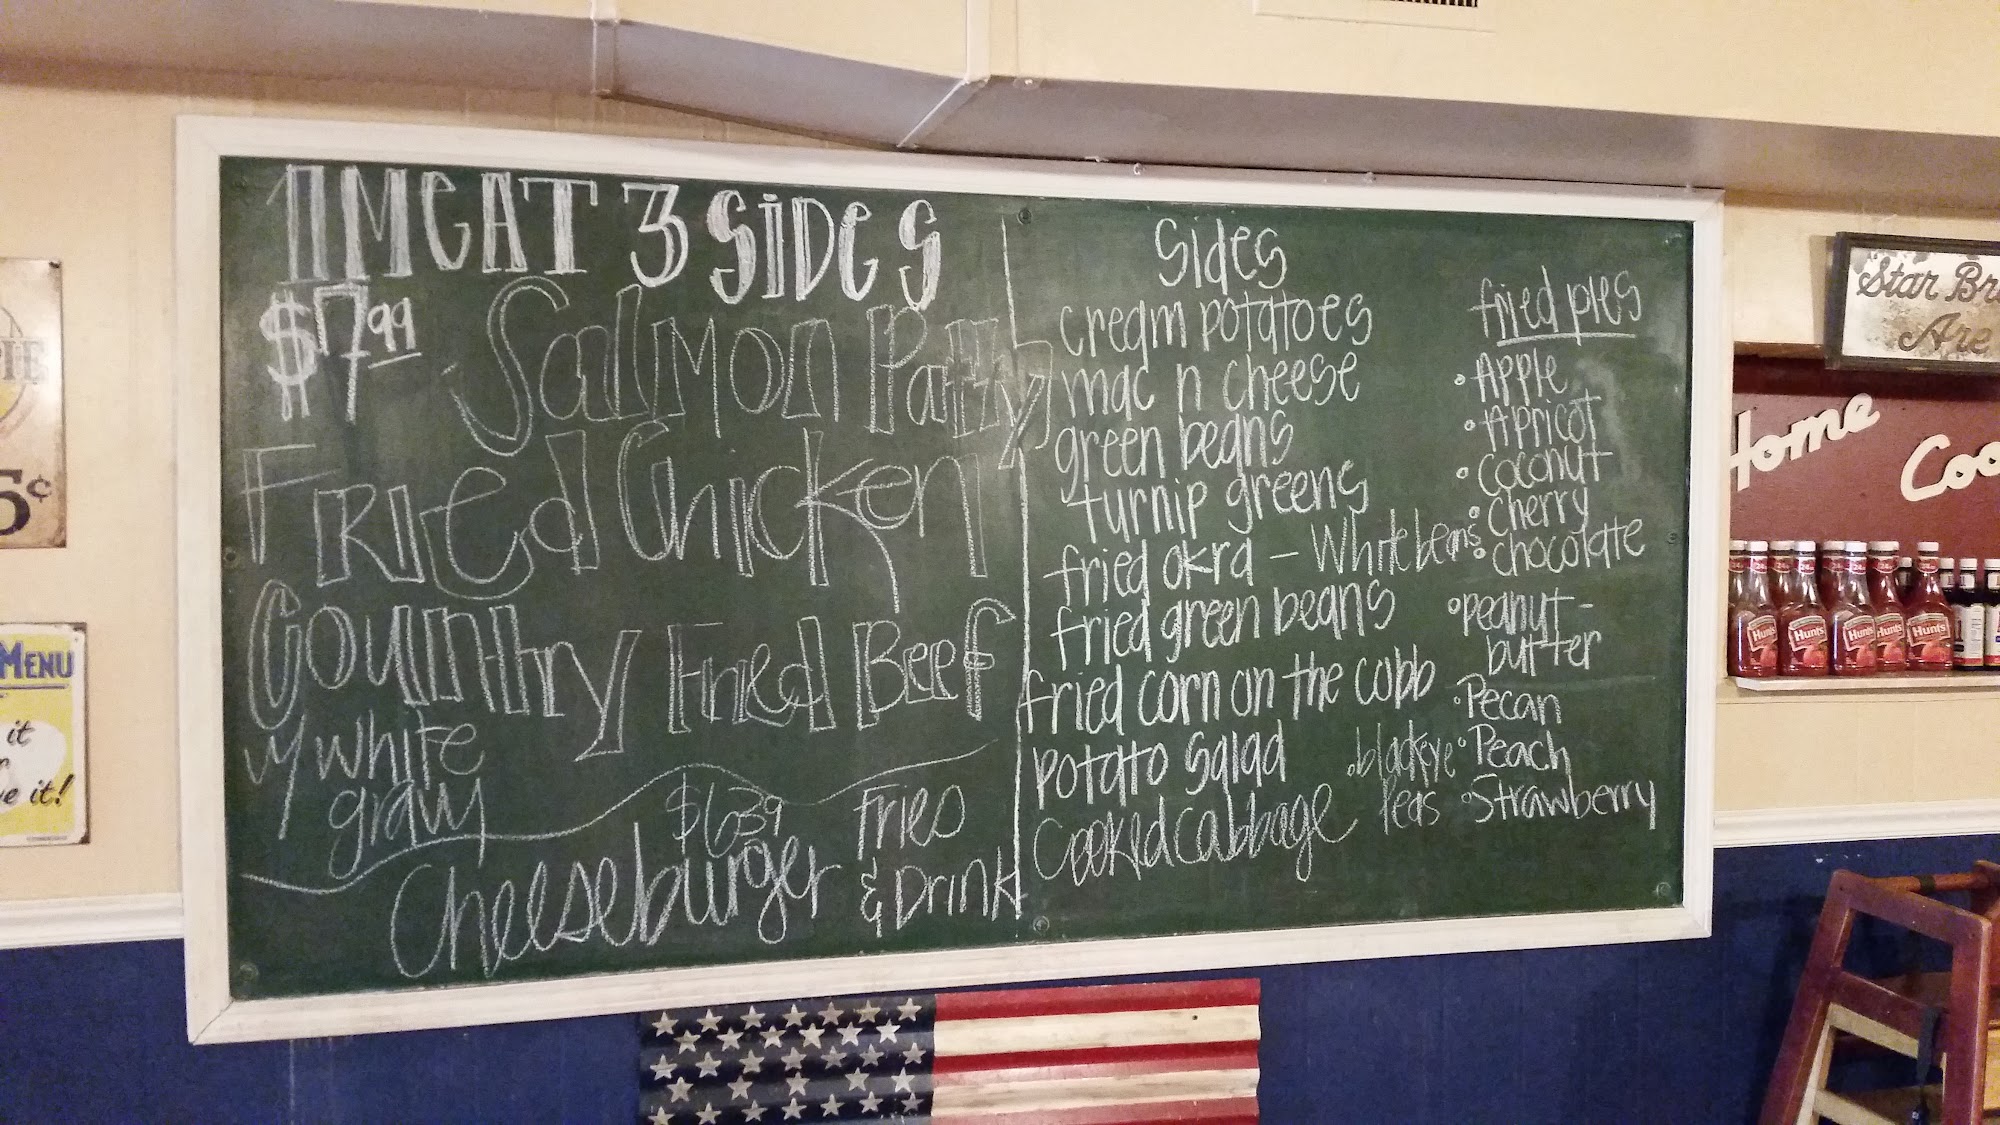 1 MEAT 3 SIDES
$7.99
Salmon Patty
Fried Chicken
Country Fried Beef
w/ white
gravy
$6.39
Cheeseburger
Fries
& Drink
Sides
cream potatoes
mac n cheese
green beans
turnip greens
fried okra - White beans
fried green beans
fried corn on the cobb
potato salad
Cooked Cabbage
• blackeye
Peas
fried pies
• Apple
• Apricot
• Coconut
• Cherry
• chocolate
• peanut-
butter
• Pecan
• Peach
• Strawberry
Star Br
Are
Home
Coo
Hunt's
Hunt's
Hunt's
Hunt's
Hunt's
5¢
MENU
it
e it!